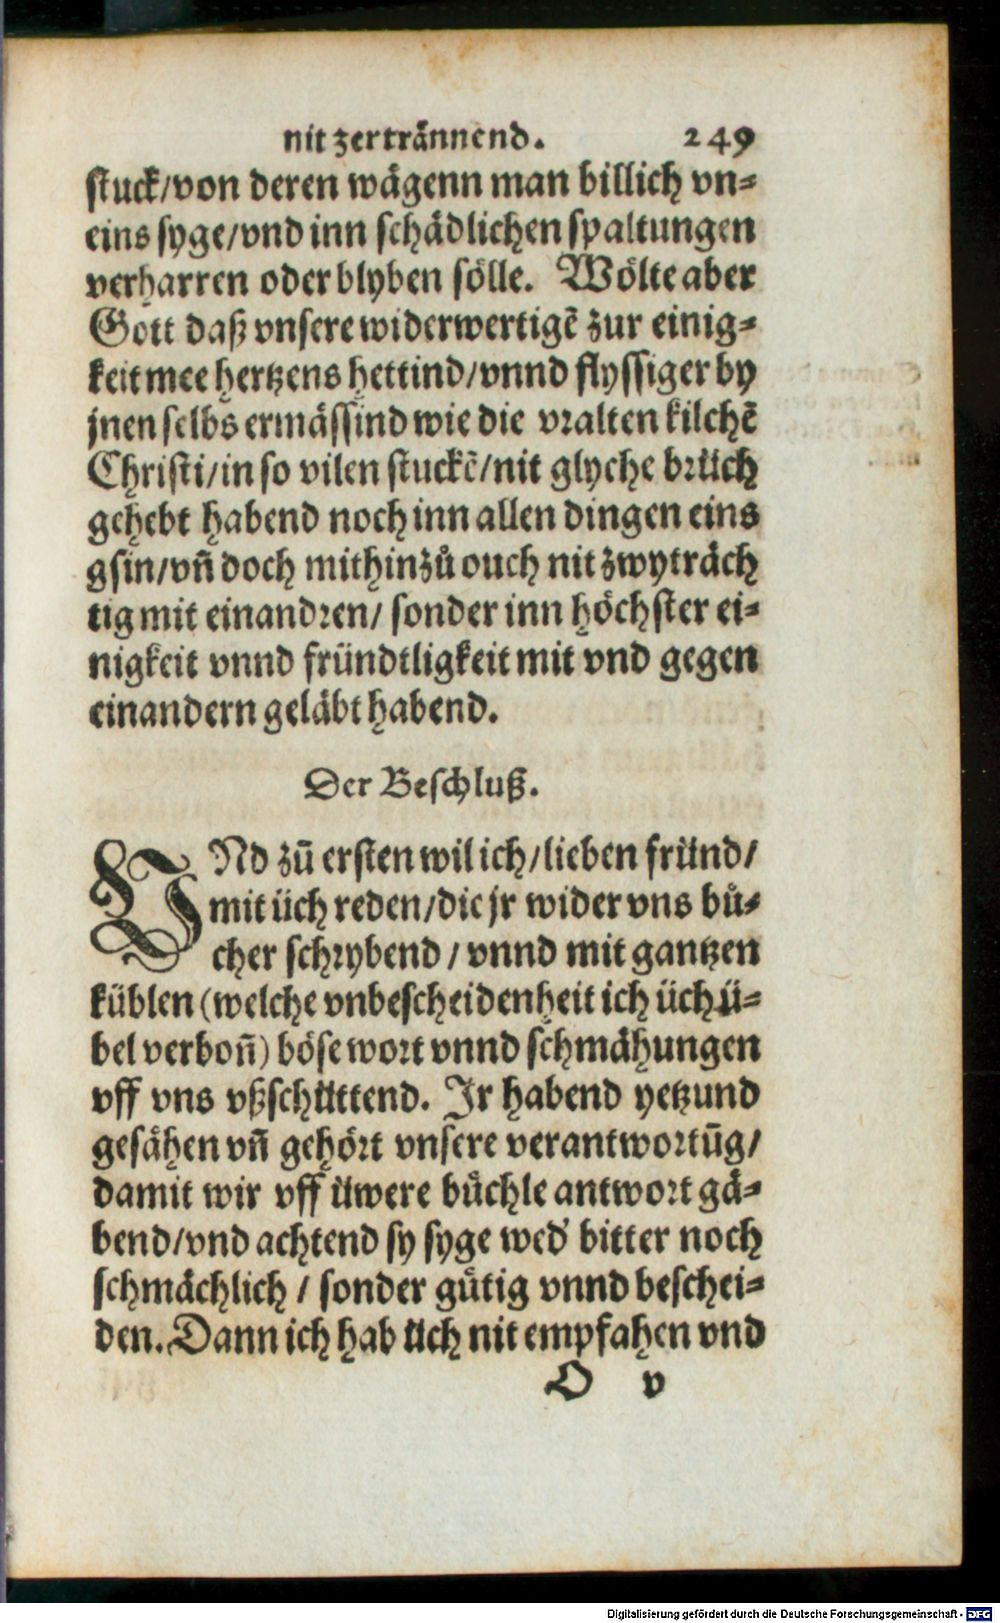 nit zertrännend. 249
stuck/von deren wägenn man billich vn-
eins syge/vnd inn schädlichen spaltungen
verharren oder blyben sölle. Wölte aber
Gott daß vnsere widerwertigē zur einig-
keit mee hertzens hettind/vnnd flyssiger by
jnen selbs ermässind wie die vralten kilchē
Christi/in so vilen stuckē/nit glyche brüch
gehebt habend noch inn allen dingen eins
gsin/vñ doch mithinzů ouch nit zwyträch
tig mit einandren/ sonder inn höchster ei-
nigkeit vnnd fründtligkeit mit vnd gegen
einandern geläbt habend.
Der Beschluß.
VNd zū ersten wil ich/lieben fründ/
mit üch reden/die jr wider vns bů-
cher schrybend / vnnd mit gantzen
küblen (welche vnbescheidenheit ich üch ü-
bel verboñ) böse wort vnnd schmähungen
vff vns vßschüttend. Ir habend yetzund
gesähen vñ gehört vnsere verantwortūg/
damit wir vff üwere bůchle antwort gä-
bend/vnd achtend sy syge wed' bitter noch
schmächlich / sonder gůtig vnnd beschei-
den. Dann ich hab üch nit empfahen vnd
O v
Digitalisierung gefördert durch die Deutsche Forschungsgemeinschaft - DFG